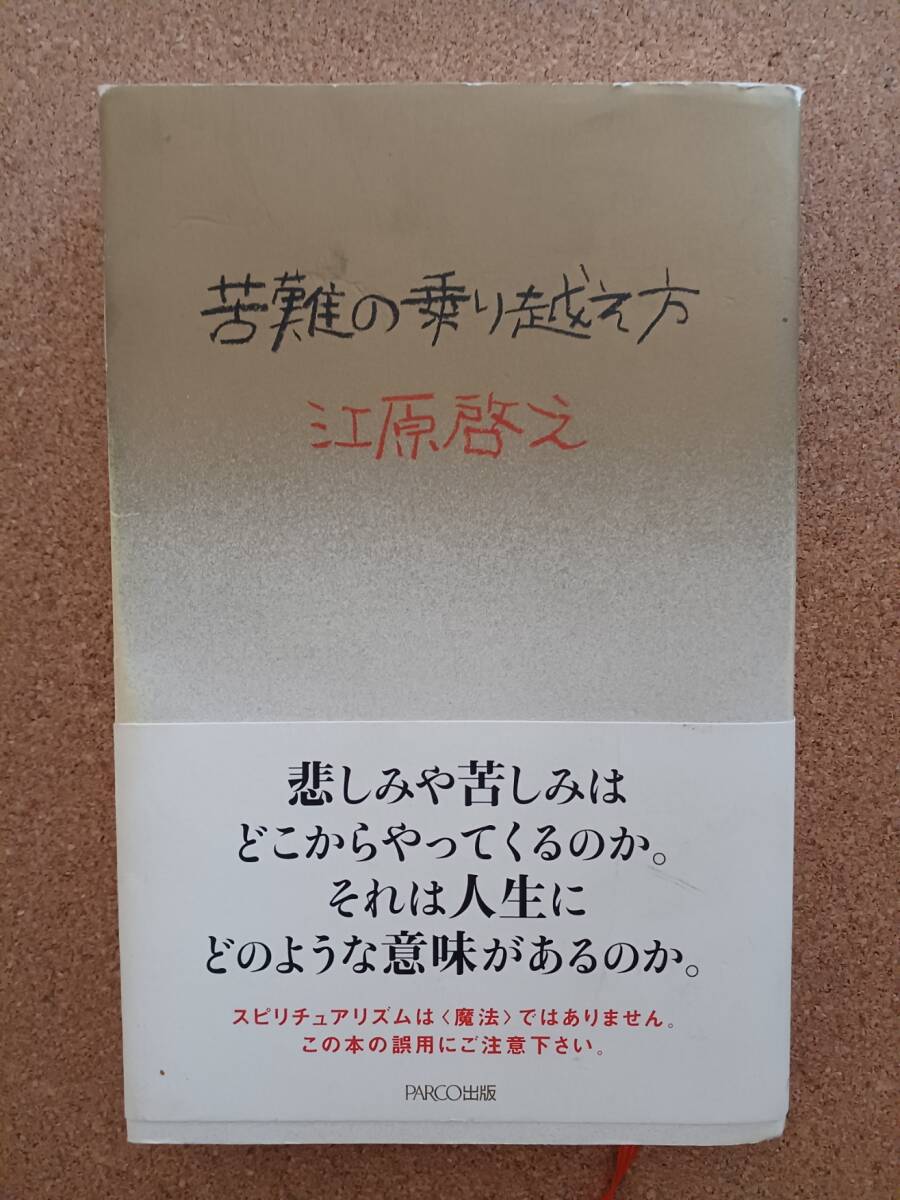 苦難の乗り越え方
江原啓之
悲しみや苦しみは
どこからやってくるのか。
それは人生に
どのような意味があるのか。
スピリチュアリズムは〈魔法〉ではありません。
この本の誤用にご注意下さい。
PARCO出版